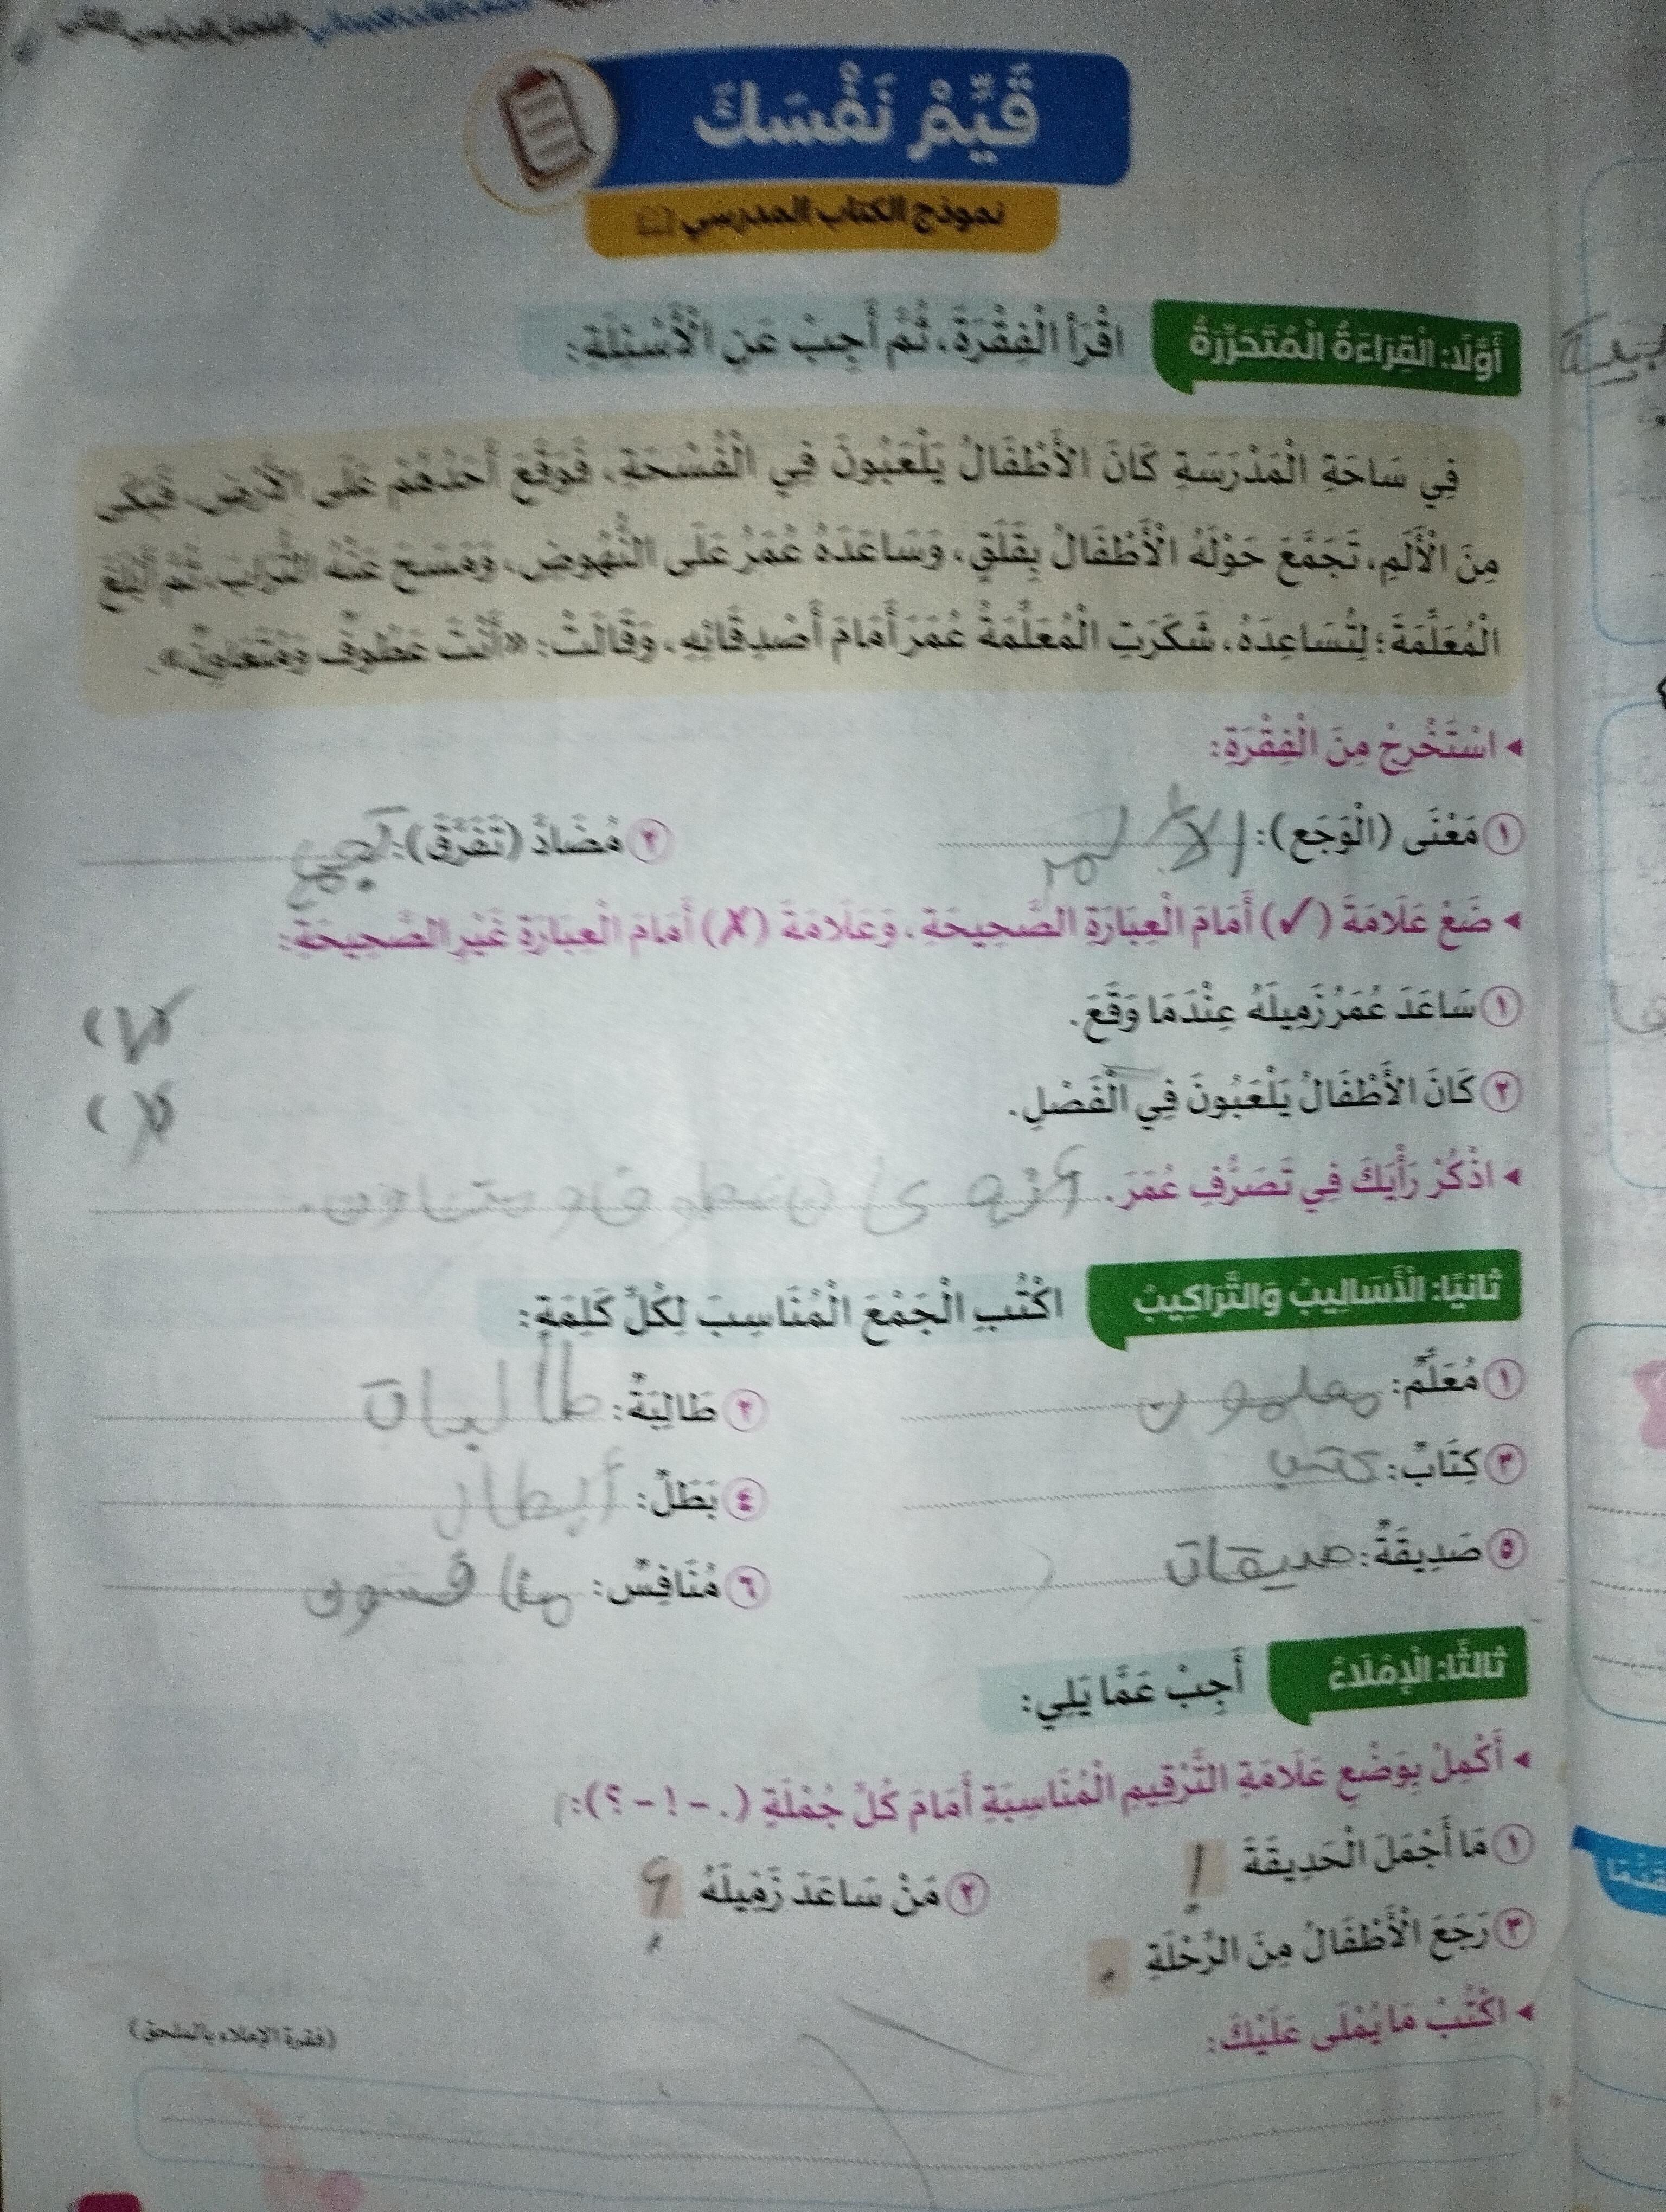 قَيِّمْ نَفْسَكَ
نموذج الكتاب المدرسي
أَوَّلًا: الْقِرَاءَةُ الْمُتَحَرِّرَةُ اقْرَأِ الْفِقْرَةَ، ثُمَّ أَجِبْ عَنِ الْأَسْئِلَةِ:
فِي سَاحَةِ الْمَدْرَسَةِ كَانَ الأَطْفَالُ يَلْعَبُونَ فِي الْفُسْحَةِ، فَوَقَعَ أَحَدُهُمْ عَلَى الْأَرْضِ، فَبَكَى
مِنَ الْأَلَمِ، تَجَمَّعَ حَوْلَهُ الْأَطْفَالُ بِقَلَقٍ، وَسَاعَدَهُ عُمَرُ عَلَى النُّهُوضِ، وَمَسَحَ عَنْهُ التُّرَابَ، ثُمَّ أَبْلَغَ
الْمُعَلِّمَةَ؛ لِتُسَاعِدَهُ، شَكَرَتِ الْمُعَلِّمَةُ عُمَرَ أَمَامَ أَصْدِقَائِهِ، وَقَالَتْ: «أَنْتَ عَطُوفٌ وَمُتَعَاوِنٌ».
◂ اسْتَخْرِجْ مِنَ الْفِقْرَةِ:
١ مَعْنَى (الْوَجَع): الألم ٢ مُضَادَّ (تَفَرَّقَ): تجمع
◂ ضَعْ عَلَامَةَ (✓) أَمَامَ الْعِبَارَةِ الصَّحِيحَةِ، وَعَلَامَةَ (✗) أَمَامَ الْعِبَارَةِ غَيْرِ الصَّحِيحَةِ:
١ سَاعَدَ عُمَرُ زَمِيلَهُ عِنْدَمَا وَقَعَ. (✓)
٢ كَانَ الأَطْفَالُ يَلْعَبُونَ فِي الْفَصْلِ. (✗)
◂ اذْكُرْ رَأْيَكَ فِي تَصَرُّفِ عُمَرَ. أنه كان عطوف و متعاون.
ثانيًا: الْأَسَالِيبُ وَالتَّرَاكِيبُ اكْتُبِ الْجَمْعَ الْمُنَاسِبَ لِكُلِّ كَلِمَةٍ:
١ مُعَلِّمٌ: معلمون ٢ طَالِبَةٌ: طالبات
٣ كِتَابٌ: كتب ٤ بَطَلٌ: أبطال
٥ صَدِيقَةٌ: صديقات ٦ مُنَافِسٌ: منافسون
ثالثًا: الْإِمْلَاءُ أَجِبْ عَمَّا يَلِي:
◂ أَكْمِلْ بِوَضْعِ عَلَامَةِ التَّرْقِيمِ الْمُنَاسِبَةِ أَمَامَ كُلِّ جُمْلَةٍ (. - ! - ؟):
١ مَا أَجْمَلَ الْحَدِيقَةَ ! ٢ مَنْ سَاعَدَ زَمِيلَهُ ؟
٣ رَجَعَ الْأَطْفَالُ مِنَ الرِّحْلَةِ .
◂ اكْتُبْ مَا يُمْلَى عَلَيْكَ:
(فقرة الإملاء بالملحق)